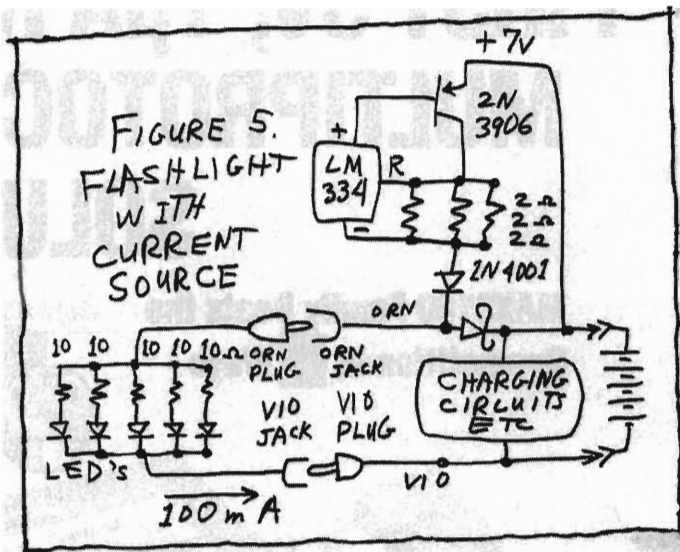 +7V
2N
3906
FIGURE 5.
FLASHLIGHT
WITH
CURRENT
SOURCE
+
LM
334
R
-
2Ω
2Ω
2Ω
1N4001
ORN
10 10 10 10 10Ω
ORN
PLUG
ORN
JACK
VIO
JACK
VIO
PLUG
CHARGING
CIRCUITS
ETC
LED'S
VIO
100mA